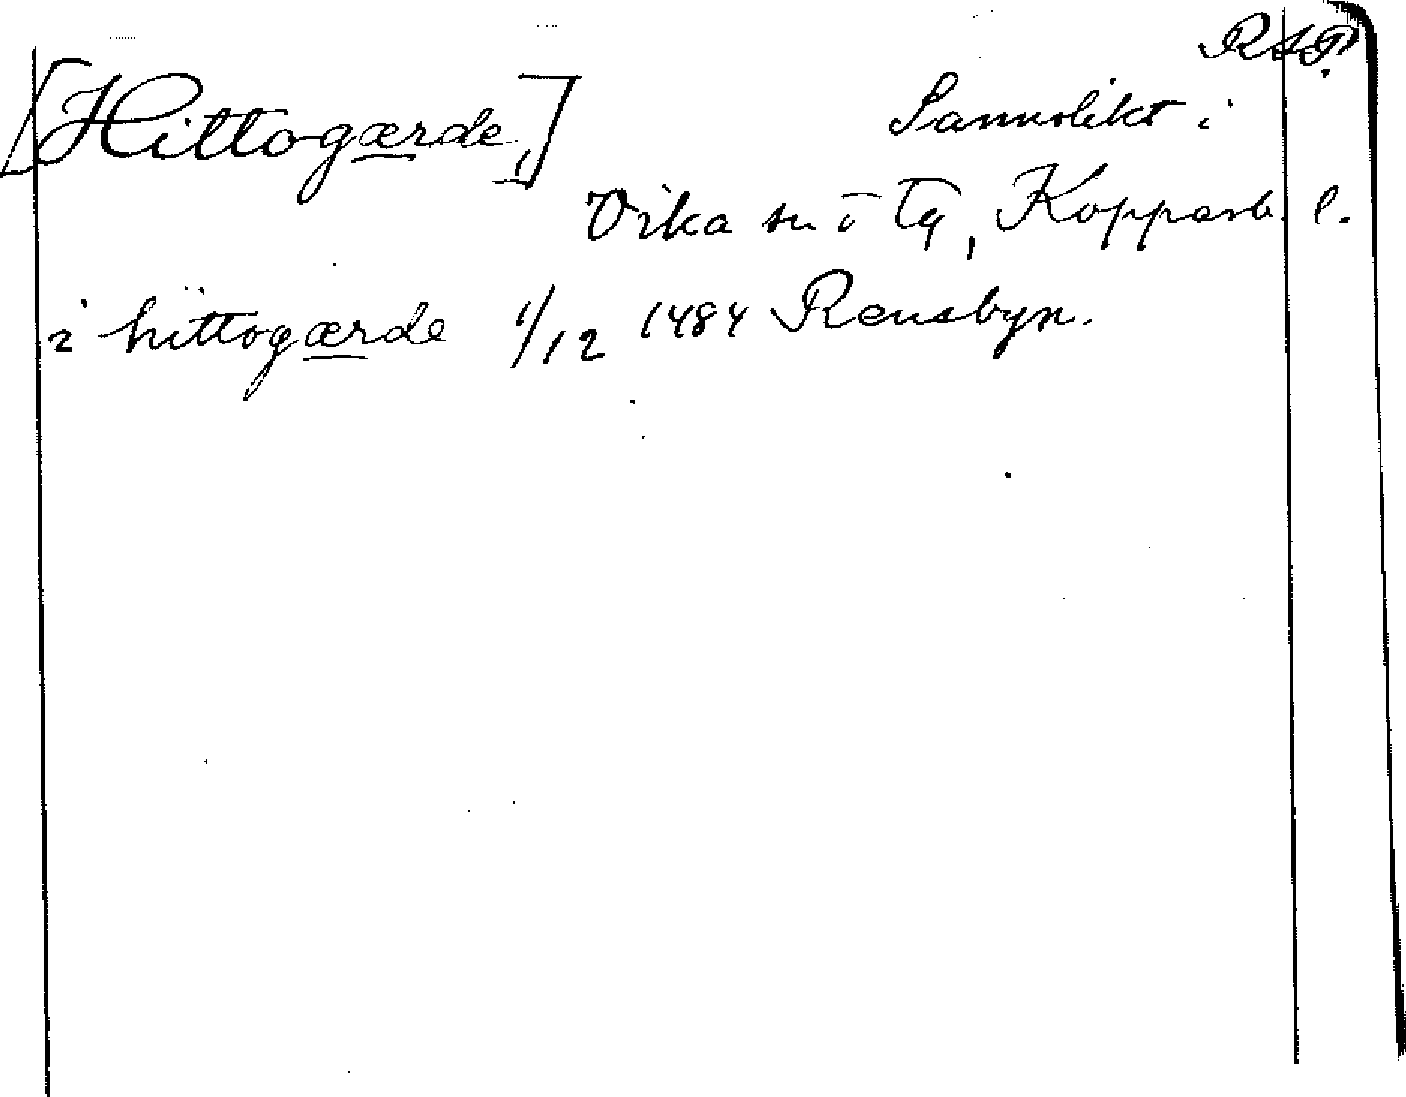 RAP.
[Hittogærde,]
Sannolikt i
Vika sn o Tg, Kopparb. l.
i hittogærde 1/12 1484 Rensbyn.